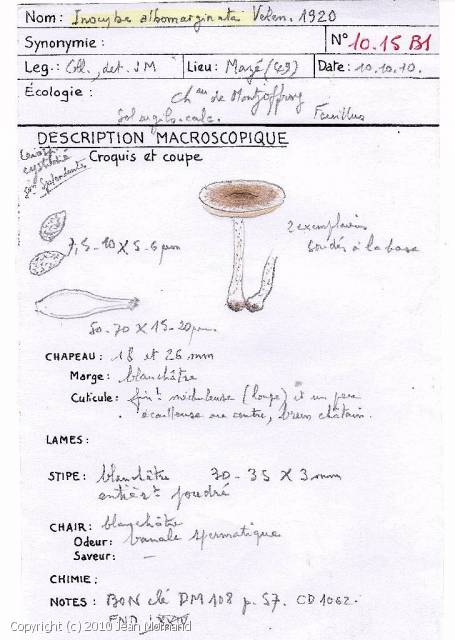 Nom : Inocybe albomarginata Velen. 1920
Synonymie :
N° 10.15 B1
Leg. : Coll., det. JM
Lieu : Mazé (49)
Date : 10.10.10.
Écologie :
Chau de Montgeoffroy
Sol argilo-calc. Feuillus
DESCRIPTION MACROSCOPIQUE
Croquis et coupe
2 exemplaires
soudés à la base
7,5-10 X 5-6 µm
50-70 X 15-20 µm
CHAPEAU : 18 et 26 mm
Marge : blanchâtre
Cuticule : fint méchuleuse (loupe) et un peu
écailleuse au centre, brun châtain.
LAMES :
STIPE : blanchâtre 30-35 X 3 mm
entièrt poudré
CHAIR : blanchâtre
Odeur : banale spermatique
Saveur : —
CHIMIE :
NOTES : BON clé DM 108 p. 57. CD 1062.
FND
Copyright (c) 2010 Jean Mornand